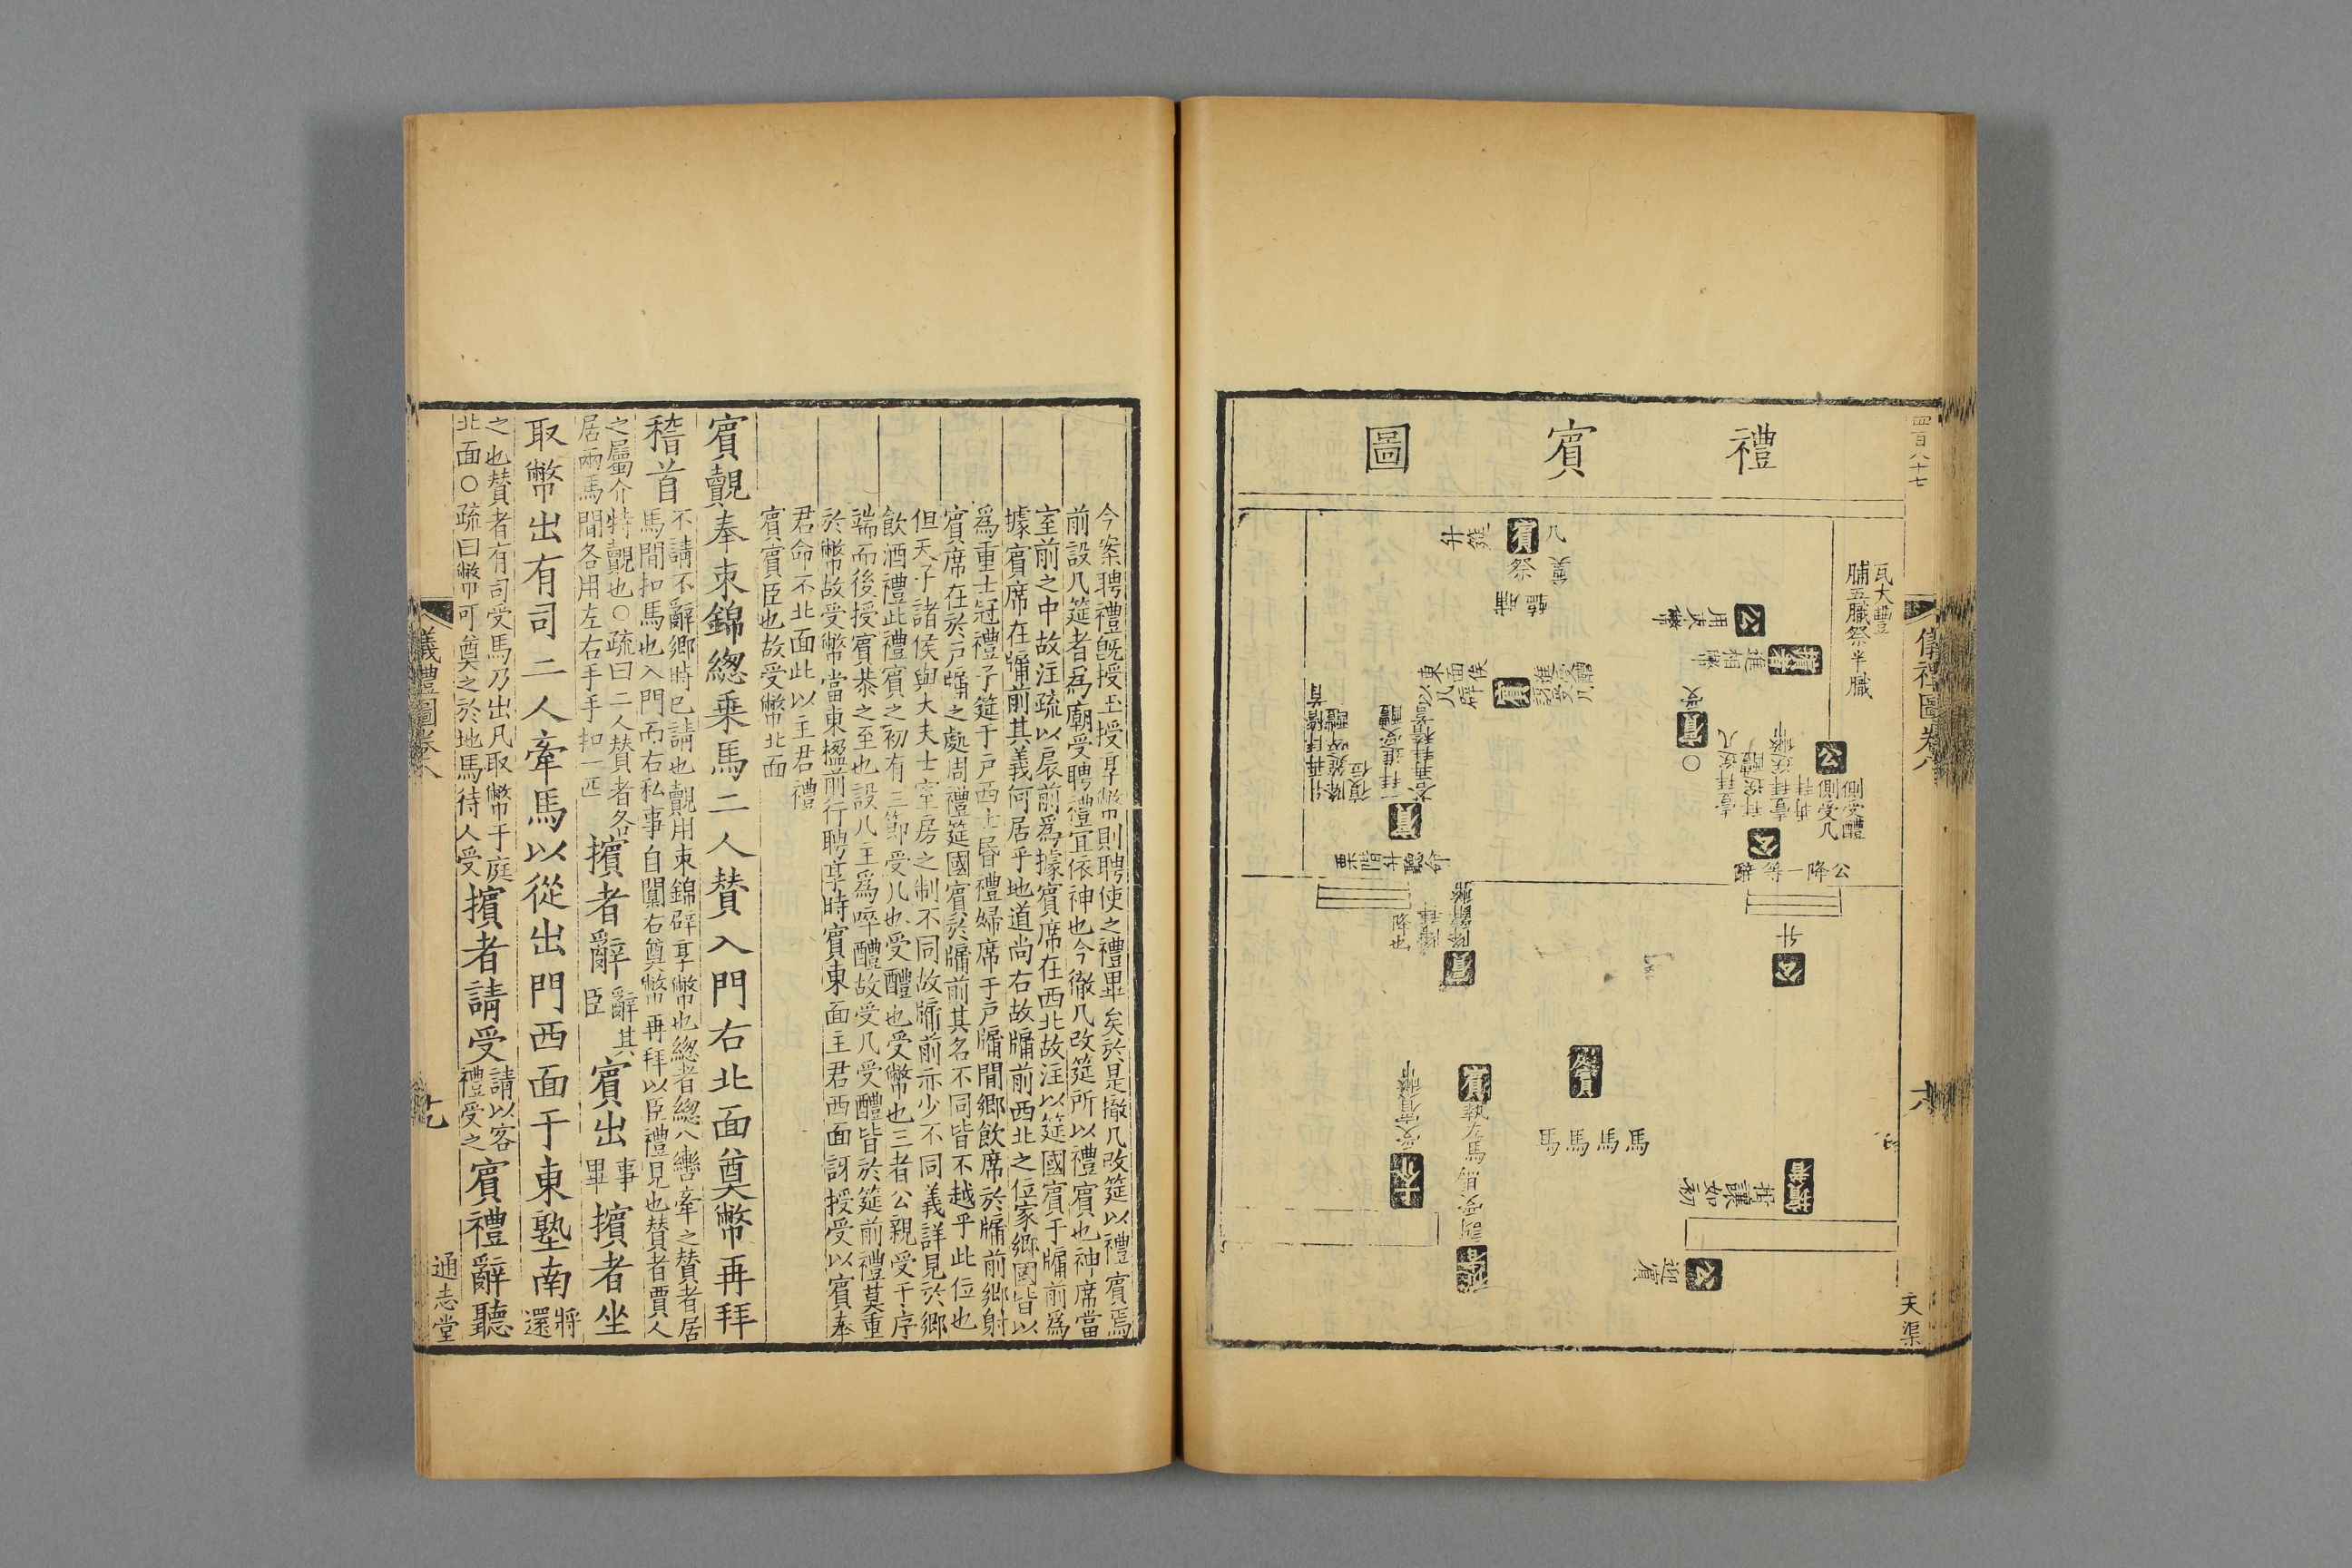 禮賓圖
四百八十七
瓦大豐
脯五膱祭半膱
几
賓
祭
升筵
脯醢
公
用束幣
擯者
進相幣
賓
受
○
公
側受几
側受醴
公
公降一等辭
賓
栗階升聽命
公
升
賓
馬馬馬馬
上介
受賓幣
從者
訝受馬
擯者
揖讓如初
公
迎賓
天渠
今案聘禮旣授玉授享幣則聘使之禮畢矣於是撤几改筵以禮賓焉
前設几筵者爲廟受聘禮宜依神也今徹几改筵所以禮賓也神席當
室前之中故注疏以扆前爲據賓席在西北故注以筵國賓于牖前爲
據賓席在牖前其義何居乎地道尚右故牖前西北之位家鄉國皆以
爲重士冠禮子筵于戸西士昏禮婦席于戸牖閒鄉飲席於牖前鄉射
賓席在於戸牖之處周禮筵國賓於牖前其名不同皆不越乎此位也
但天子諸侯與大夫士室房之制不同故牖前亦少不同義詳見於鄉
飲酒禮此禮賓之初有三節受几也受醴也受幣也三者公親受于序
端而後授賓恭之至也設几主爲啐醴故受几受醴皆於筵前禮莫重
於幣故受幣當東楹前行聘享時賓東面主君西面訝授受以賓奉
君命不北面此以主君禮
賓賓臣也故受幣北面
賓覿奉束錦緫乗馬二人贊入門右北面奠幣再拜
稽首
不請不辭鄉時已請也覿用束錦辟享幣也緫者緫八轡牽之贊者居
馬閒扣馬也入門而右私事自闑右奠幣再拜以臣禮見也贊者賈人
之屬介特覿也○疏曰二人贊者各
居兩馬閒各用左右手手扣一匹
擯者辭
辭其
臣
賓出
事
畢
擯者坐
取幣出有司二人牽馬以從出門西面于東塾南
將
還
之也贊者有司受馬乃出凡取幣于庭
北面○疏曰幣可奠之於地馬待人受
擯者請受
請以客
禮受之
賓禮辭聽
儀禮圖卷八
通志堂